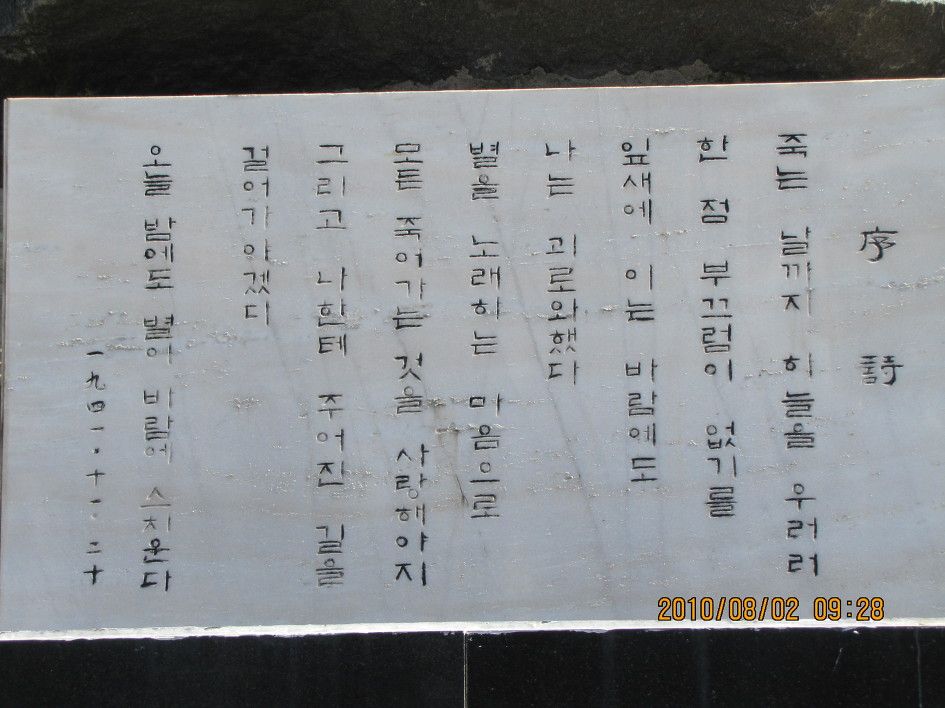 序 詩
죽는 날까지 하늘을 우러러
한 점 부끄럼이 없기를
잎새에 이는 바람에도
나는 괴로와했다
별을 노래하는 마음으로
모든 죽어가는 것을 사랑해야지
그리고 나한테 주어진 길을
걸어가야겠다
오늘 밤에도 별이 바람에 스치운다
一九四一·十一·二十
2010/08/02 09:28